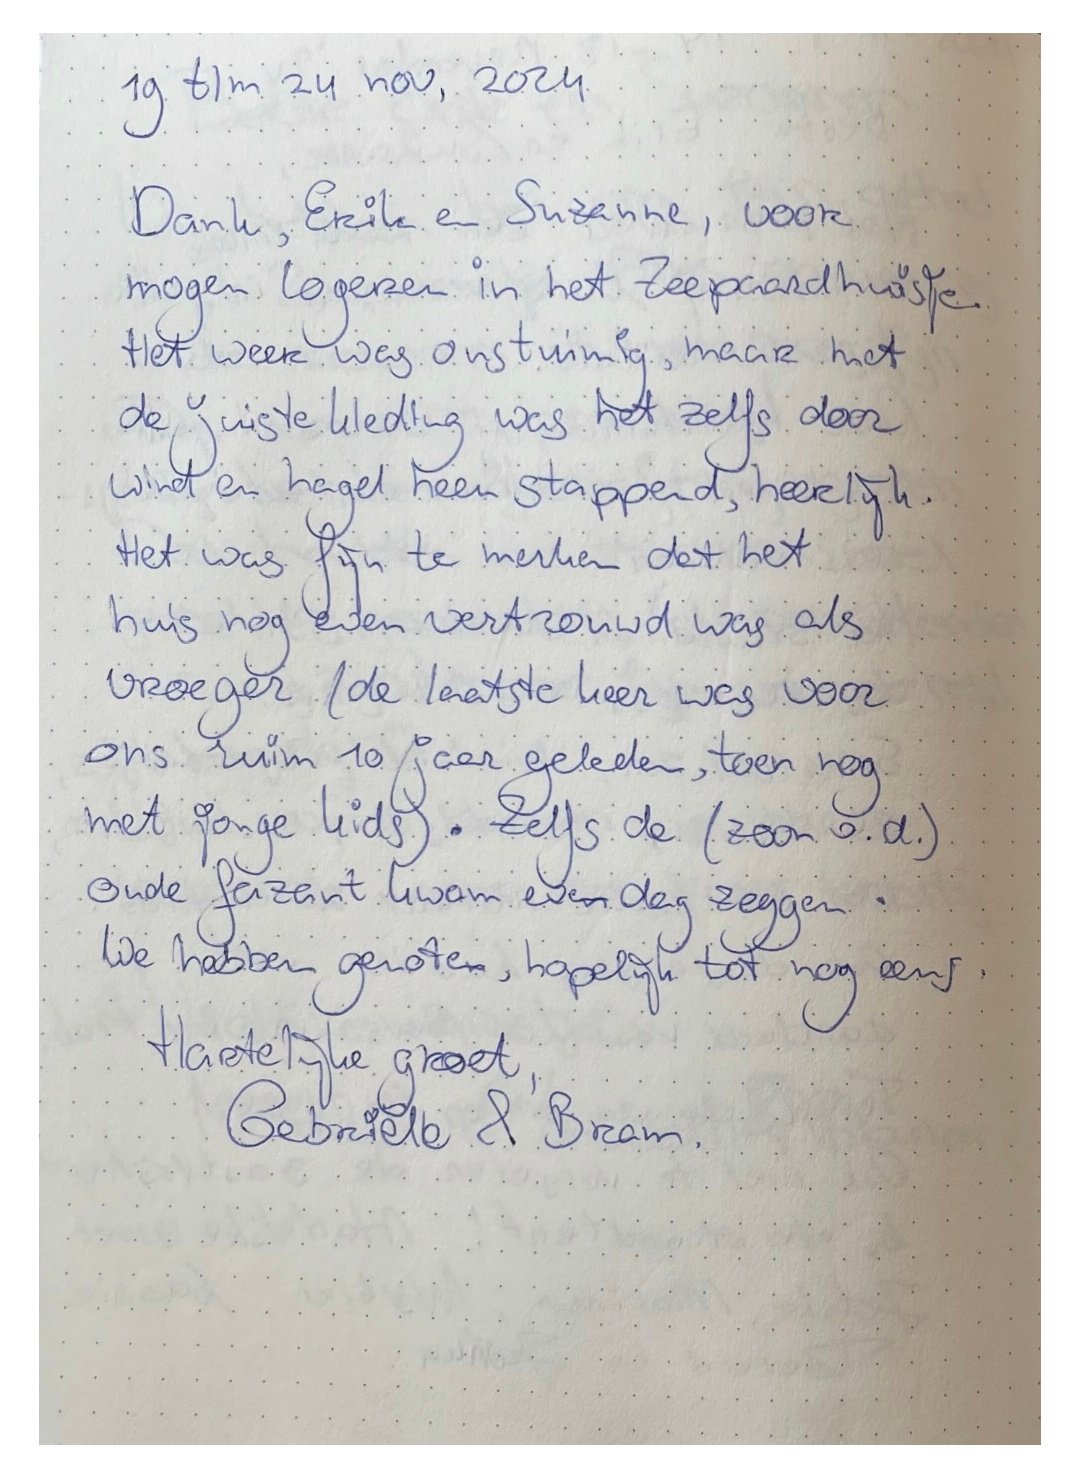 19 t/m 24 nov, 2024
Dank, Erik en Suzanne, voor
mogen logeren in het Zeepaardhuisje.
Het weer was onstuimig, maar met
de juiste kleding was het zelfs door
wind en hagel heen stappend, heerlijk.
Het was fijn te merken dat het
huis nog even vertrouwd was als
vroeger (de laatste keer was voor
ons ruim 10 jaar geleden, toen nog
met jonge kids). Zelfs de (zoon v.d.)
oude fazant kwam even dag zeggen.
We hebben genoten, hopelijk tot nog eens.
Hartelijke groet,
Gebriële & Bram.